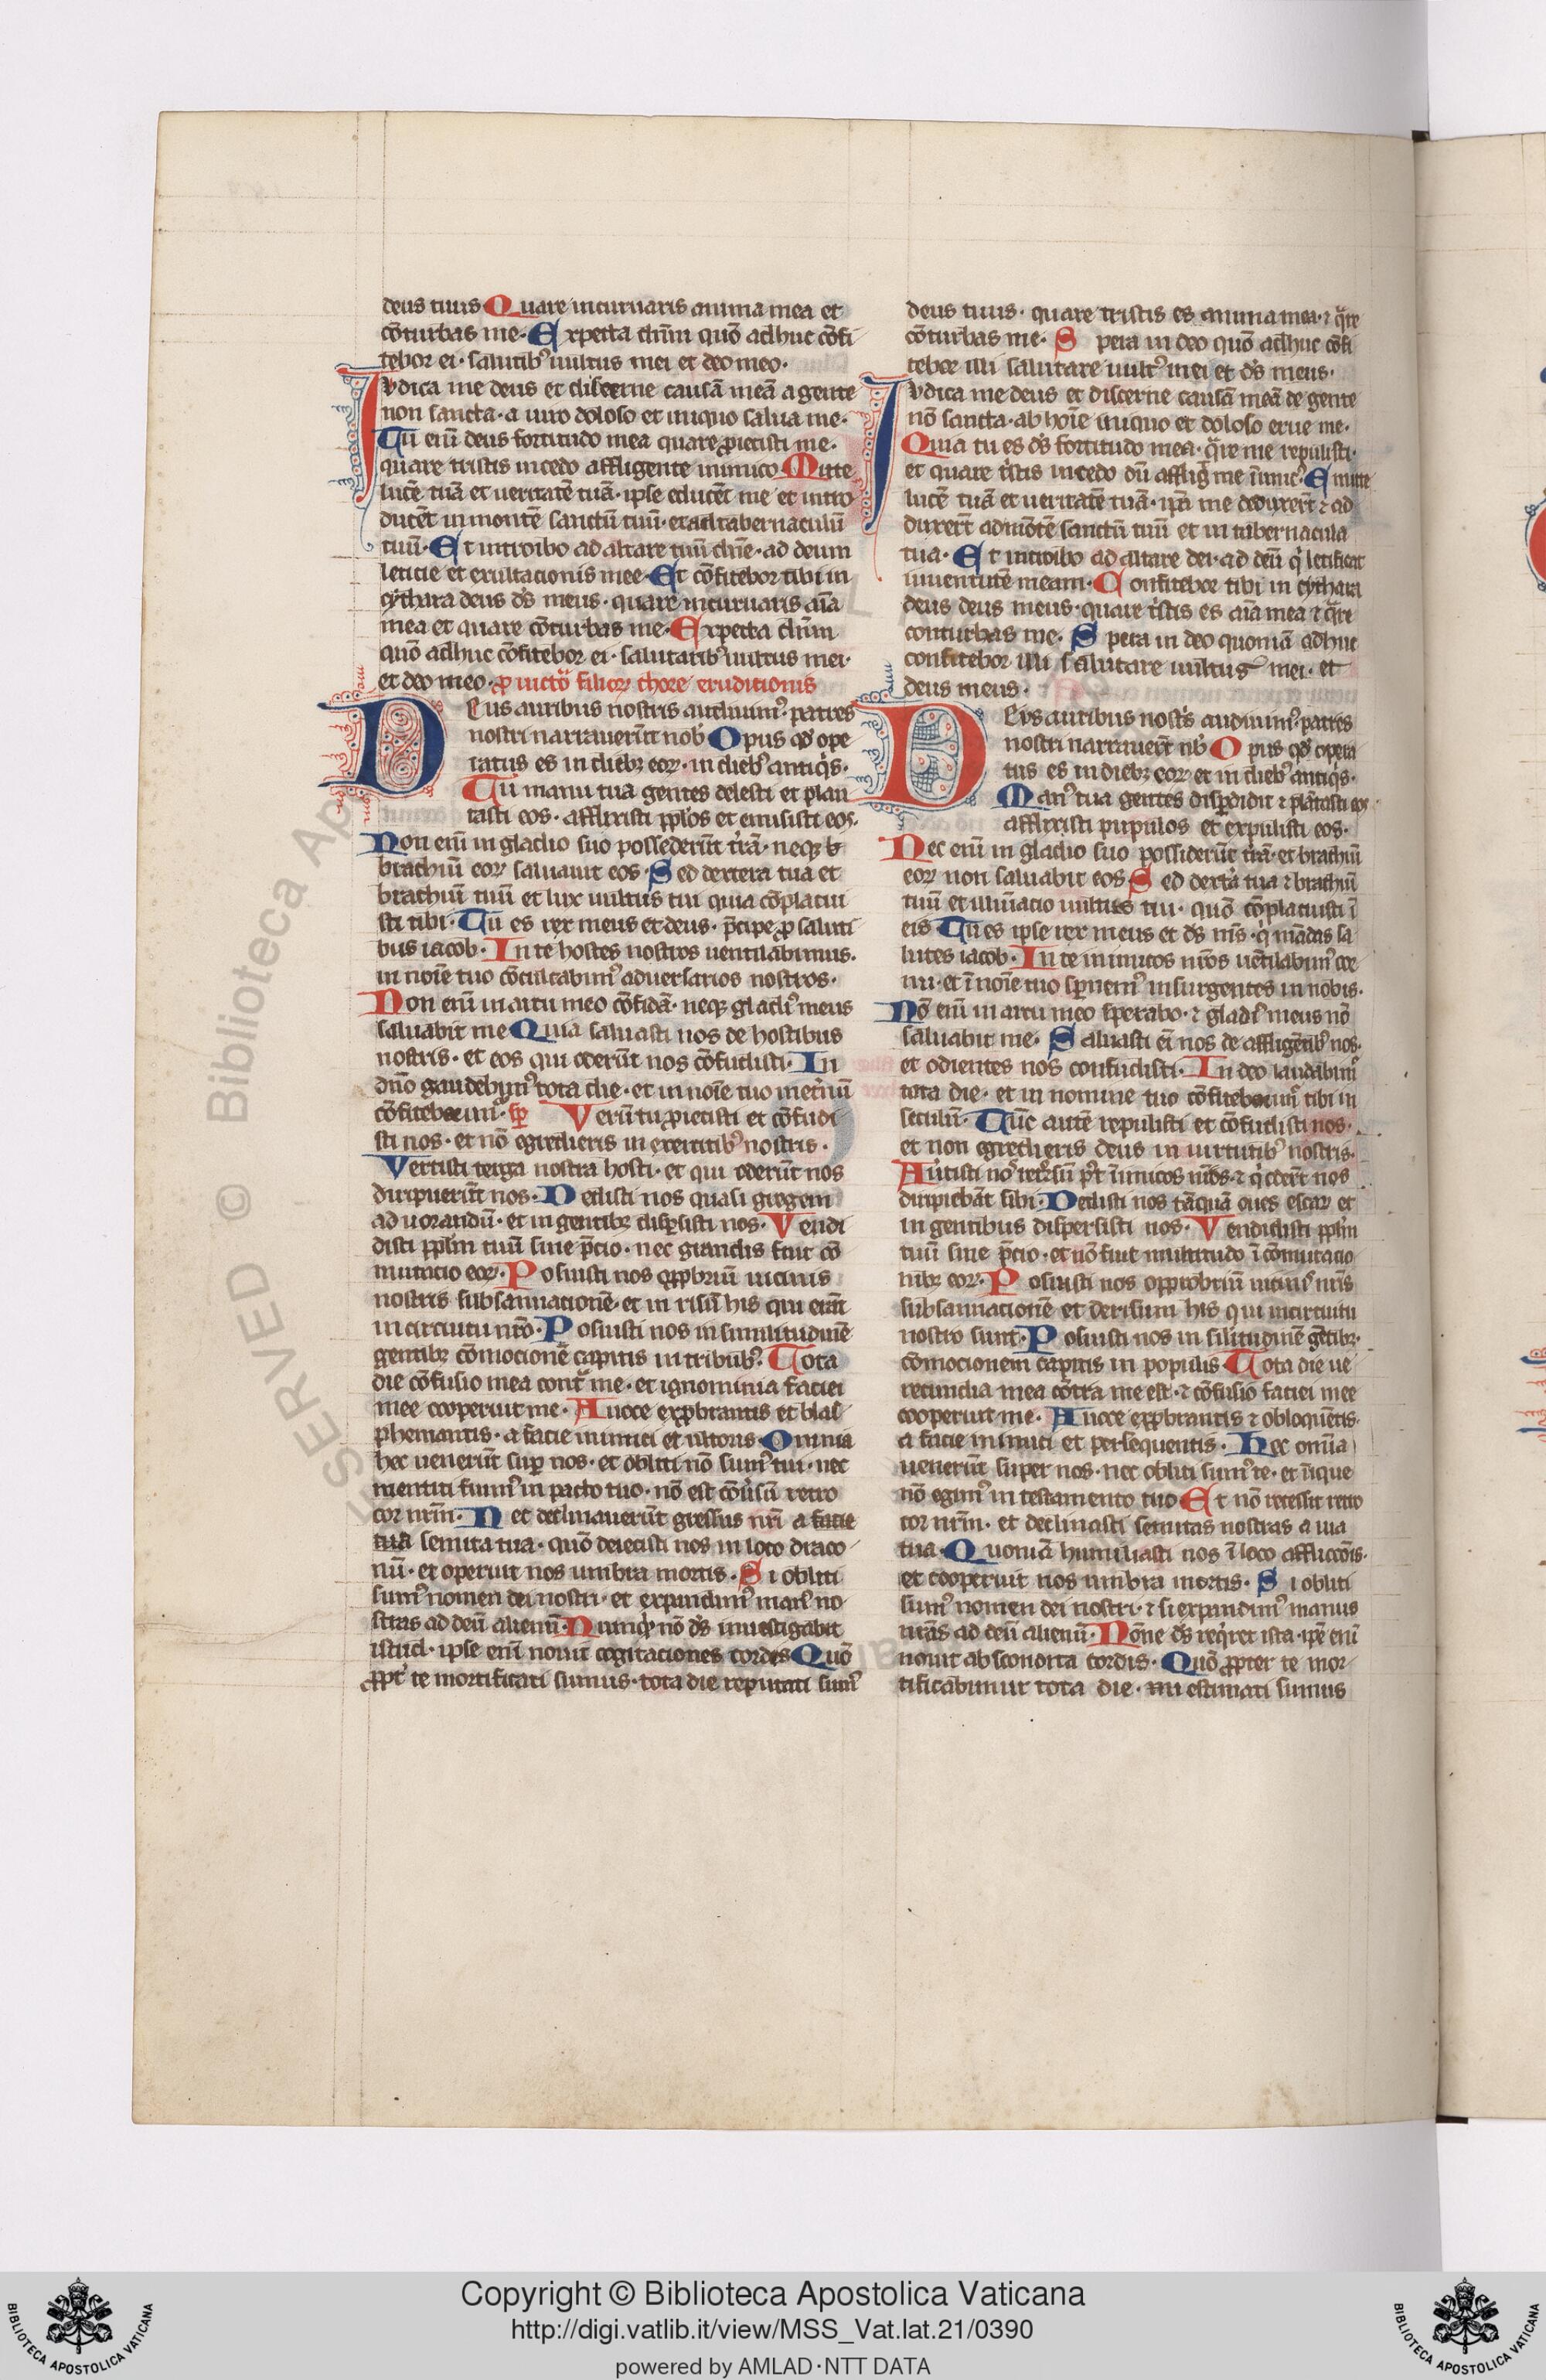 deus tuus Quare incuruaris anima mea et
ↄ̄turbas me· Expecta dn̄m quō adhuc cōfi
tebor ei· salutibꝰ uultus mei et deo meo·
Iudica me deus et discerne causā meā a gente
non sancta· a uiro doloso et iniquo salua me·
Tu eni̅ deus fortitudo mea quare ꝓiecisti me·
quare tristis incedo affligente inimico· Mitte
lucē tuā et ueritatē tuā· ipse educēt me et intro
ducēt in montē sanctū tuū· et ad tabernaculū
tuū· Et introibo ad altare tuū dn̄e· ad deum
leticie et exultacionis mee· Et cōfitebor tibi in
cythara deus ds̄ meus· quare incuruaris aīa
mea et quare cōturbas me· Expecta dn̄m
quō adhuc cōfitebor ei· salutaribꝰ uultus mei·
et deo meo· ꝓ uictor̄ filioꝝ chore eruditionis
Deus auribus nostris audiuimꝰ· patres
nostri narrauerūt nob̄ Opus qd̄ ope
ratus es in diebꝫ eoꝝ· in diebꝰ antiq̄s·
Tu manu tua gentes delesti et plan
tasti eos· afflixisti pplōs et emisisti eos·
Non eni̅ in gladio suo possederūt tr̄ā· neqꝫ b
brachiū eoꝝ saluauit eos· Sed dextera tua et
brachiū tuū et lux uultus tui quia cōplacui
sti tibi· Tu es rex meus et deus· p̄cipe ꝓ saluti
bus iacob· In te hostes nostros uentilabimus·
in noīe tuo cōculcabimꝰ aduersarios nostros·
Non eni̅ in arcu meo cōfidā· neqꝫ gladiꝰ meus
saluabit me Quia saluasti nos de hostibus
nostris· et eos qui oderūt nos cōfudisti· In
dn̄o gaudebimꝰ tota die· et in noīe tuo in et̄nū
cōfitebimꝰ· sp̄ Verū tu ꝓiecisti et cōfudi
sti nos· et nō egredieris in exercitibꝰ nostris·
Vertisti terga nostra hosti· et qui oderūt nos
diripuerūt nos· Dedisti nos quasi gregem
ad uorandū· et in gentibꝫ disꝑsisti nos· Vendi
disti pplm̄ tuū sine p̄cio· nec grandis fuit cō
mutacio eoꝝ· Posuisti nos opꝓbriū uicinis
nostris subsannationē· et in risū his qui erāt
in circuitu nr̄o· Posuisti nos in similitudinē
gentibꝫ cōmocionē capitis in tribubꝰ· Tota
die cōfusio mea contꝰ me· et ignominia faciei
mee cooperuit me· A uoce exꝓbrantis et blas
phemantis· a facie inimici et ultoris· Omnia
hec uenerūt suꝑ nos· et obliti nō sumꝰ tui· nec
mentiti sumꝰ in pacto tuo· nō est cōu̓sū retro
cor nr̄m· Nec declinauerūt gressus nr̄i a facie
tua semita tua· quō deiecisti nos in loco draco
nū· et operuit nos umbra mortis· Si obliti
sumꝰ nomen dei nostri· et expandimꝰ manꝰ no
stras ad deū alienū· Nunqͥd nō ds̄ inuestigabit
istud· ipse eni̅ nouit cogitaciones cordis Quō
ꝓpt̓ te mortificati sumus· tota die reputati sumꝰ
deus tuus· quare tristis es anima mea· ⁊ qͣre
cōturbas me· Spera in deo quō adhuc cōfi
tebor illi salutare uultꝰ mei et ds̄ meus·
Iudica me deus et discerne causā meā de gente
nō sancta· ab hoīe iniquo et doloso erue me·
Quia tu es ds̄ fortitudo mea· qͣre me repulisti·
et quare tͥstis incedo dū affligͥ me īimicꝰ· Emitte
lucē tuā et ueritatē tuā· ip̄a me deduxer̄t ⁊ ad
duxer̄t ad mōtē sanctū tuū et in tabernacula
tua· Et introibo ad altare dei· ad deū qͥ letificat
iuuentutē meam· Confitebor tibi in cythara
deus deus meus· quare tͥstis es aīa mea ⁊ qͣre
conturbas me· Spera in deo quoniā adhuc
confitebor illi salutare uultus mei· et
deus meus·
Deus auribus nostͥs audiuimꝰ· patres
nostri narrauer̄t nb̄ Opus qd̄ opera
tus es in diebꝫ eoꝝ et in diebꝰ antiqͥs·
Manꝰ tua gentes disꝑdidit ⁊ plātasti eos·
afflixisti pupulos et expulisti eos·
Nec eni̅ in gladio suo possiderūt tr̄ā· et brachiū
eoꝝ non saluabit eos Sed dextͣa tua ⁊ brachiū
tuū et illuīacio uultus tui· quō cōplacuisti ī
eis Tu es ipse rex meus et ds̄ ms̄· qͥ mādas sa
lutes iacob· In te inimicos nr̄os uētilabimꝰ cor
nu· et ī noīe tuo sꝑnemꝰ insurgentes in nobis·
Nō eni̅ in arcu meo sperabo· ⁊ gladiꝰ meus nō
saluabit me· Saluasti ei̅ nos de affligētibꝰ nos·
et odientes nos confudisti· In deo laudabimꝰ
tota die· et in nomine tuo cōfitebimꝰ tibi in
seculū· Tūc autē repulisti et cōfudisti nos·
et non egredieris deus in uirtutibꝰ nostris·
Au̓tisti noˢ retrͦsū pͦt īimicos nr̄os· ⁊ qͥ oder̄t nos
diripiebāt sibi· Dedisti nos tāquā oues escaꝝ et
in gentibus dispersisti nos· Vendidisti pplm̄
tuū sine p̄cio· et nō fuit multitudo ī cōmutacio
nibꝫ eoꝝ· Posuisti nos opprobriū uiciniˢ nr̄is
subsannacionē et derisum his qui incircuitu
nostro sunt· Posuisti nos in silitudinē gētibꝫ·
cōmocionem capitis in populis Tota die ue
recundia mea cōtra me est· ⁊ cōfusio faciei mee
cooperuit me· A uoce exꝓbrantis ⁊ obloquētis·
a facie inimici et persequentis· Hec omīa
uenerūt super nos· nec obliti sumꝰ te· et īique
nō egimꝰ in testamento tuo Et nō recessit retro
cor nr̄m· et declinasti semitas nostras a uia
tua· Quoniā humiliasti nos ī loco affliccōis·
et cooperuit nos umbra mortis· Si obliti
sumꝰ nomen dei nostri· ⁊ si expandimꝰ manus
nr̄as ad deū alienū· Nōne ds̄ reqͥret ista· ip̄e eni̅
nouit absconcita cordis· Quō ꝓpter te mor
tificabimur tota die· estimati sumus
Copyright © Biblioteca Apostolica Vaticana
http://digi.vatlib.it/view/MSS_Vat.lat.21/0390
powered by AMLAD·NTT DATA
BIBLIOTECA APOSTOLICA VATICANA
BIBLIOTECA APOSTOLICA VATICANA